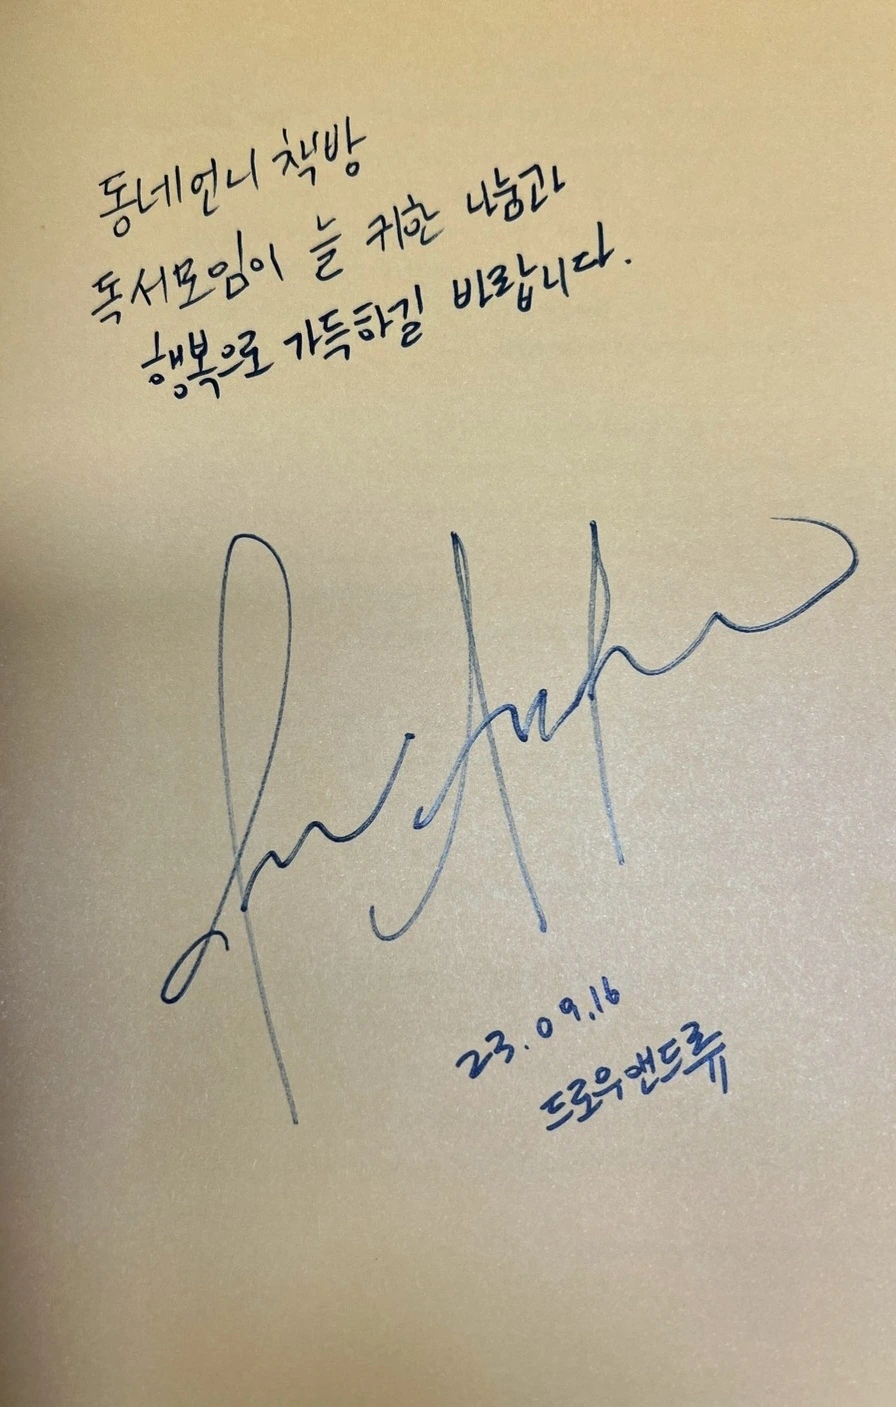 동네언니 책방
독서모임이 늘 귀한 나눔과
행복으로 가득하길 바랍니다.
23.09.16
드로우앤드류